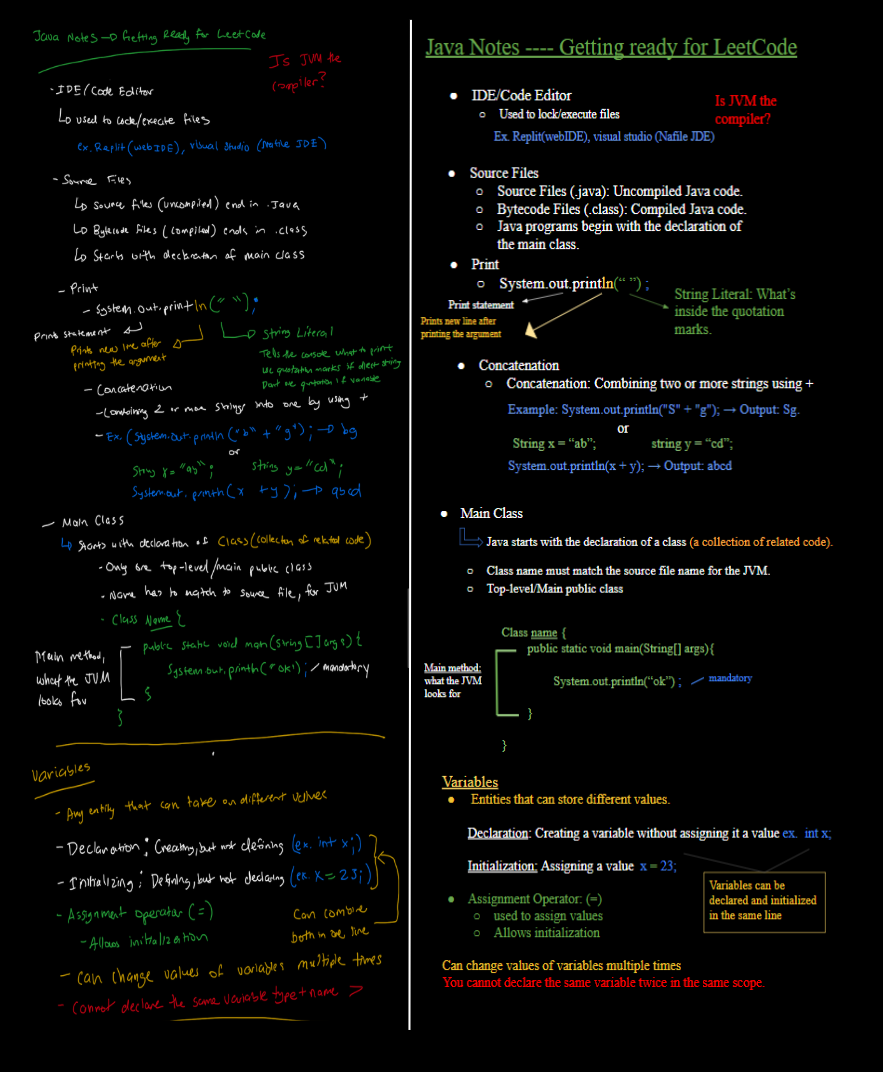 Java Notes → Getting Ready for LeetCode
Is JVM the
compiler?
- IDE/Code Editor
↳ used to code/execute files
ex. Replit (web IDE), visual studio (Native IDE)
- Source Files
↳ source files (uncompiled) end in .Java
↳ Bytecode files (compiled) ends in .class
↳ Starts with declaration of main class
- Print
- System.out.println(" ");
Print statement
Prints new line after
printing the argument
String Literal
Tells the console what to print
use quotation marks if direct string
Dont use quotation if variable
- Concatenation
- Combining 2 or more strings into one by using +
- Ex. (System.out.println("b" + "g"); → bg
or
String x = "ab"; string y = "cd";
System.out.println(x + y); → abcd
- Main Class
↳ Starts with declaration of Class (collection of related code)
- Only one top-level/main public class
- Name has to match to source file, for JVM
- Class Name {
public static void main(String[] args) {
System.out.println("ok"); / mandatory
Main method,
what the JVM
looks for
}
}
Variables
- Any entity that can take on different values
- Declaration: Creating, but not defining (ex. int x;)
- Initializing: Defining, but not declaring (ex. x = 23;)
- Assignment operator (=)
- Allows initialization
Can combine
both in one line
- Can change values of variables multiple times
- Cannot declare the same variable type + name >
Java Notes ---- Getting ready for LeetCode
● IDE/Code Editor
○ Used to lock/execute files
Ex. Replit(webIDE), visual studio (Nafile JDE)
Is JVM the
compiler?
● Source Files
○ Source Files (.java): Uncompiled Java code.
○ Bytecode Files (.class): Compiled Java code.
○ Java programs begin with the declaration of
the main class.
● Print
○ System.out.println(“ ”) ;
Print statement
Prints new line after
printing the argument
String Literal: What’s
inside the quotation
marks.
● Concatenation
○ Concatenation: Combining two or more strings using +
Example: System.out.println("S" + "g"); → Output: Sg.
or
String x = “ab”; string y = “cd”;
System.out.println(x + y); → Output: abcd
● Main Class
Java starts with the declaration of a class (a collection of related code).
○ Class name must match the source file name for the JVM.
○ Top-level/Main public class
Class name {
public static void main(String[] args){
Main method:
what the JVM
looks for
System.out.println(“ok”) ; mandatory
}
}
Variables
● Entities that can store different values.
Declaration: Creating a variable without assigning it a value ex. int x;
Initialization: Assigning a value x = 23;
Variables can be
declared and initialized
in the same line
● Assignment Operator: (=)
○ used to assign values
○ Allows initialization
Can change values of variables multiple times
You cannot declare the same variable twice in the same scope.